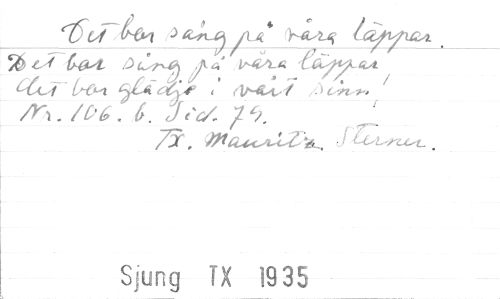 Det bor sång på våra läppar.
Det bor sång på våra läppar,
det bor glädje i vårt sinn!
Nr. 106. b. Sid. 79.
Tx. Mauritz Sterner.
Sjung TX 1935